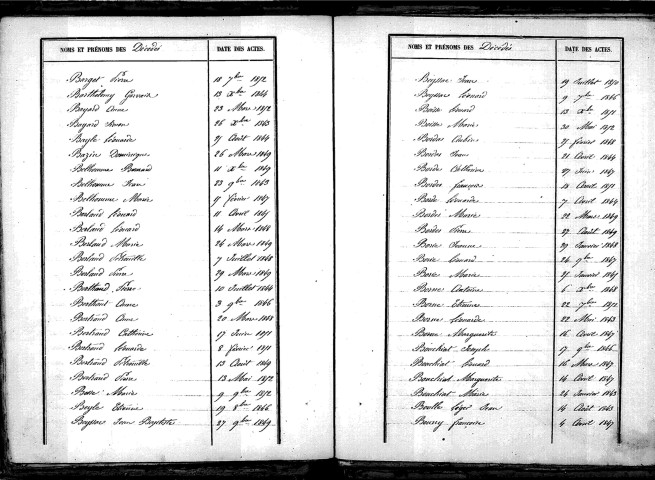 NOMS ET PRÉNOMS DES Décédés DATE DES ACTES.
Barget Pierre 18 7bre 1872
Barthélemy Gervais 13 Xbre 1864
Bayard Anne 23 Mars 1872
Bayard Simon 26 Xbre 1863
Bayle Léonarde 31 Août 1864
Bazin Dominique 26 Mars 1869
Belhomme Bernard 11 Xbre 1869
Belhomme Jean 23 9bre 1863
Belhomme Marie 9 février 1867
Berland Léonard 11 Avril
Berland Léonard 14 Mars 1866
Berland Marie 26 Mars 1869
Berland Pétronille 7 Juillet 1868
Berland Pierre 29 Mars 1869
Berthaud 10 Juillet 1864
Berthont Anne 3 9bre 1866
Bertrand Anne 20 Mars 1868
Bertrand Catherine 17 1871
Bertrand Léonarde 8 février 1871
Bertrand Pétronille 13 Août 1869
Bertrand Pierre 13 Mai 1872
Besse Marie 9 9bre 1872
Beyle Etienne 19 8bre 1866
Beyssac Jean Baptiste 27 9bre 1869
NOMS ET PRÉNOMS DES Décédés DATE DES ACTES.
Beyssac Jean 19 Juillet
Beyssac Léonard 9 7bre 1866
Boisse Léonard 13 Xbre 1871
Boisse Marie 30 Mai 1872
Bordas 21 février 1868
Bordas Jean 21 Avril 1864
Borde Catherine 27 Juin 1867
Bordes françois 18 Août 1871
Borde Léonarde 7 Août 1864
Bordes Marie 22 Mars 1869
Bordes Pierre 27 Août 1869
Borie Jeanne 29 Janvier 1868
Borie Léonard 26 9bre 1867
Borie Marie 21 Janvier 1865
Borne Antoine 6 Xbre 1868
Borne Etienne 22 7bre 1872
Borne Léonarde 22 Mai 1863
Borne Marguerite 16 Août 1867
Bouchiat Joseph 17 9bre 1866
Bouchiat Léonard 16 Mars 1867
Bouchiat Marguerite 14 Avril 1867
Bouchiat Marie 24 Janvier 1863
Boulle Léger Jean 14 Août 1863
Bourry françoise 4 Août 1867